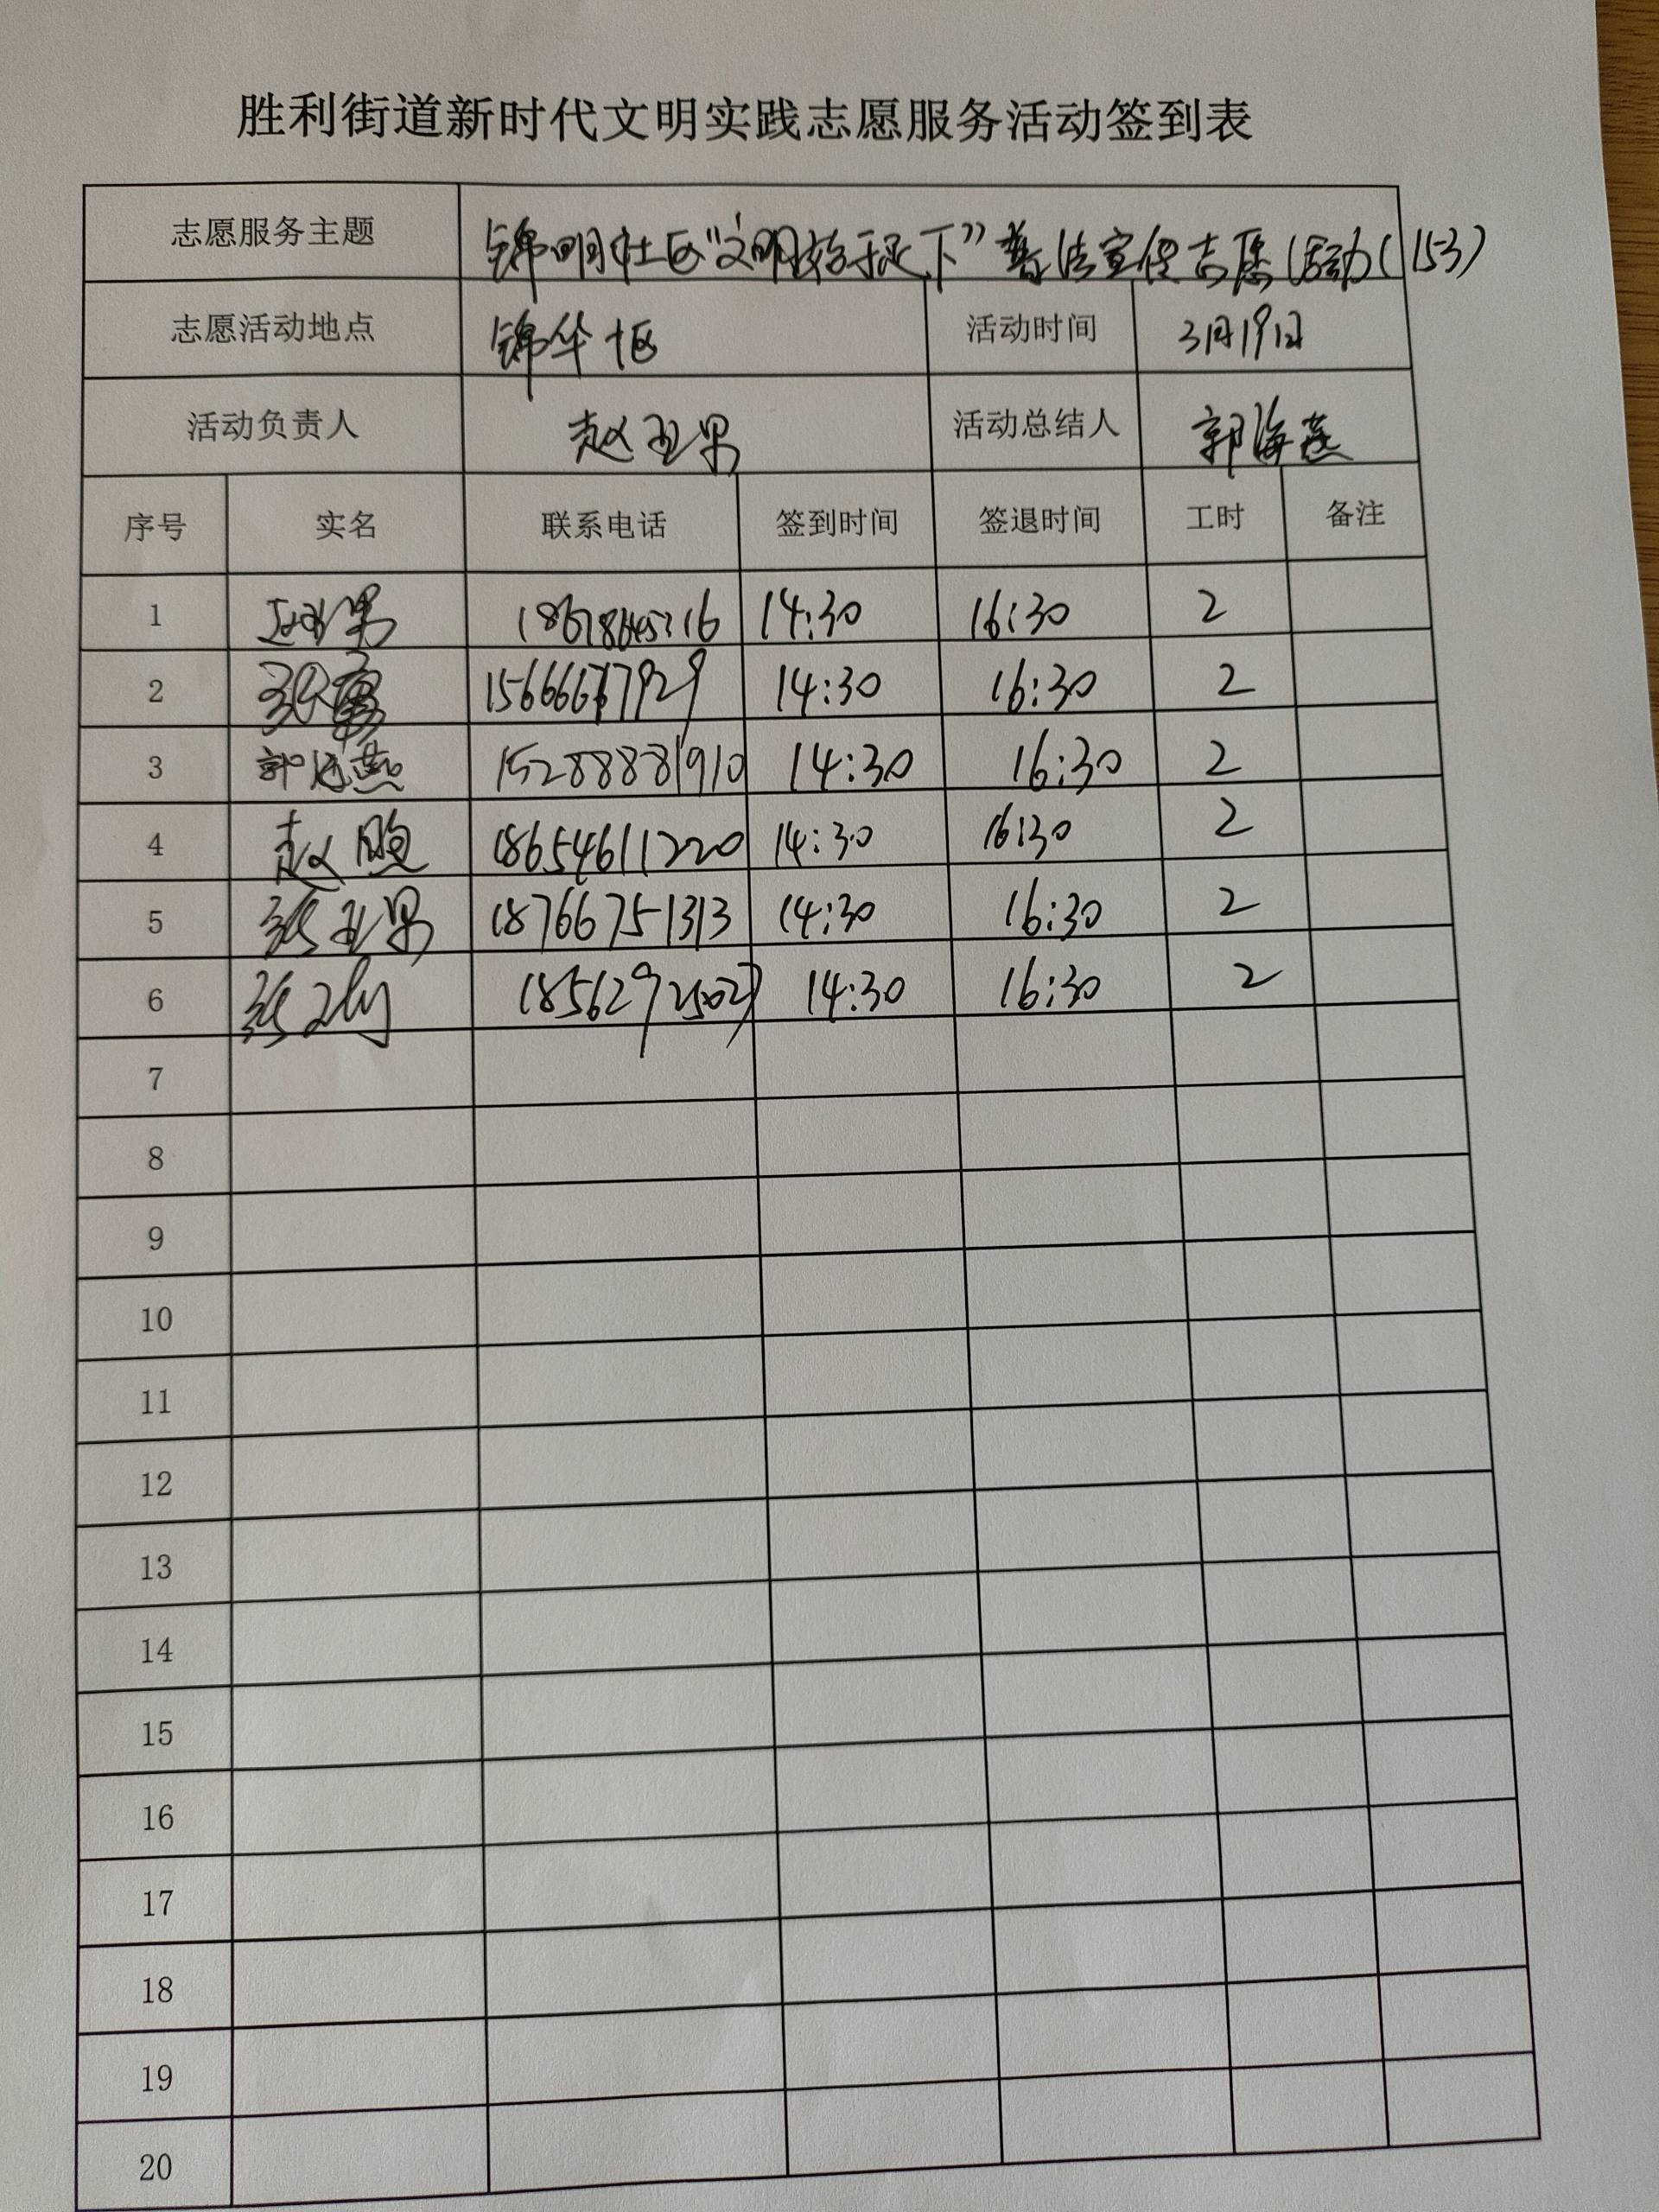 胜利街道新时代文明实践志愿服务活动签到表
志愿服务主题 锦明社区“文明始于足下”普法宣传志愿活动(153)
志愿活动地点 锦华十区 活动时间 3月19日
活动负责人 赵亚男 活动总结人 郭海燕
序号 实名 联系电话 签到时间 签退时间 工时 备注
1 14:30 16:30 2
2 14:30 16:30 2
3 郭海燕 15288881910 14:30 16:30 2
4 赵 18654611220 14:30 16:30 2
5 张亚男 18766751313 14:30 16:30 2
6 张 18562925027 14:30 16:30 2
7
8
9
10
11
12
13
14
15
16
17
18
19
20